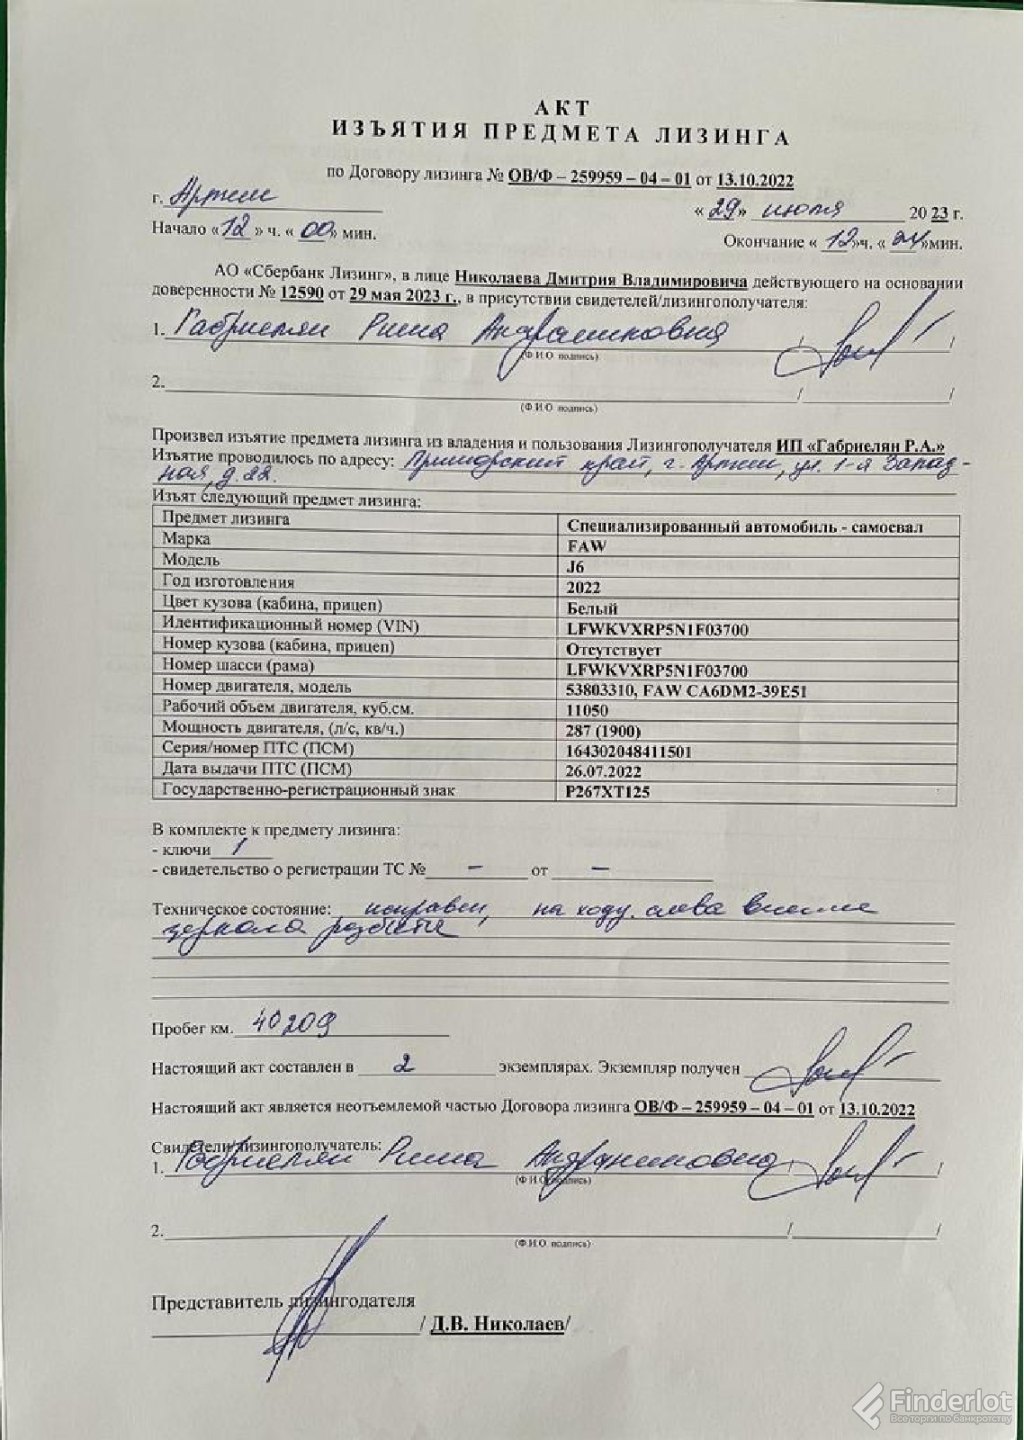 АКТ
ИЗЪЯТИЯ ПРЕДМЕТА ЛИЗИНГА
по Договору лизинга № ОВ/Ф – 259959 – 04 – 01 от 13.10.2022
г. Артем
« 29» июля 20 23 г.
Начало «12 » ч. « 00» мин.
Окончание « 12»ч. « 24»мин.
АО «Сбербанк Лизинг», в лице Николаева Дмитрия Владимировича действующего на основании
доверенности № 12590 от 29 мая 2023 г., в присутствии свидетелей/лизингополучателя:
1. Габриелян Рима Андраниковна / /
(Ф.И.О. подпись)
2. / /
(Ф.И.О. подпись)
Произвел изъятие предмета лизинга из владения и пользования Лизингополучателя ИП «Габриелян Р.А.»
Изъятие проводилось по адресу: Приморский край, г. Артем, ул. 1-я Запад-
ная, д. 22.
Изъят следующий предмет лизинга:
Предмет лизинга Специализированный автомобиль - самосвал
Марка FAW
Модель J6
Год изготовления 2022
Цвет кузова (кабина, прицеп) Белый
Идентификационный номер (VIN) LFWKVXRP5N1F03700
Номер кузова (кабина, прицеп) Отсутствует
Номер шасси (рама) LFWKVXRP5N1F03700
Номер двигателя, модель 53803310, FAW CA6DM2-39E51
Рабочий объем двигателя, куб.см. 11050
Мощность двигателя, (л/с, кв/ч.) 287 (1900)
Серия/номер ПТС (ПСМ) 164302048411501
Дата выдачи ПТС (ПСМ) 26.07.2022
Государственно-регистрационный знак Р267ХТ125
В комплекте к предмету лизинга:
- ключи 1
- свидетельство о регистрации ТС № – от –
Техническое состояние: исправен, на ходу. слева
зеркала разбиты
Пробег км. 40209
Настоящий акт составлен в 2 экземплярах. Экземпляр получен
Настоящий акт является неотъемлемой частью Договора лизинга ОВ/Ф – 259959 – 04 – 01 от 13.10.2022
Свидетели/лизингополучатель:
1. Габриелян Рима Андраниковна / /
(Ф.И.О. подпись)
2. / /
(Ф.И.О. подпись)
Представитель лизингодателя
/ Д.В. Николаев/
Finderlot
Все торги по банкротству